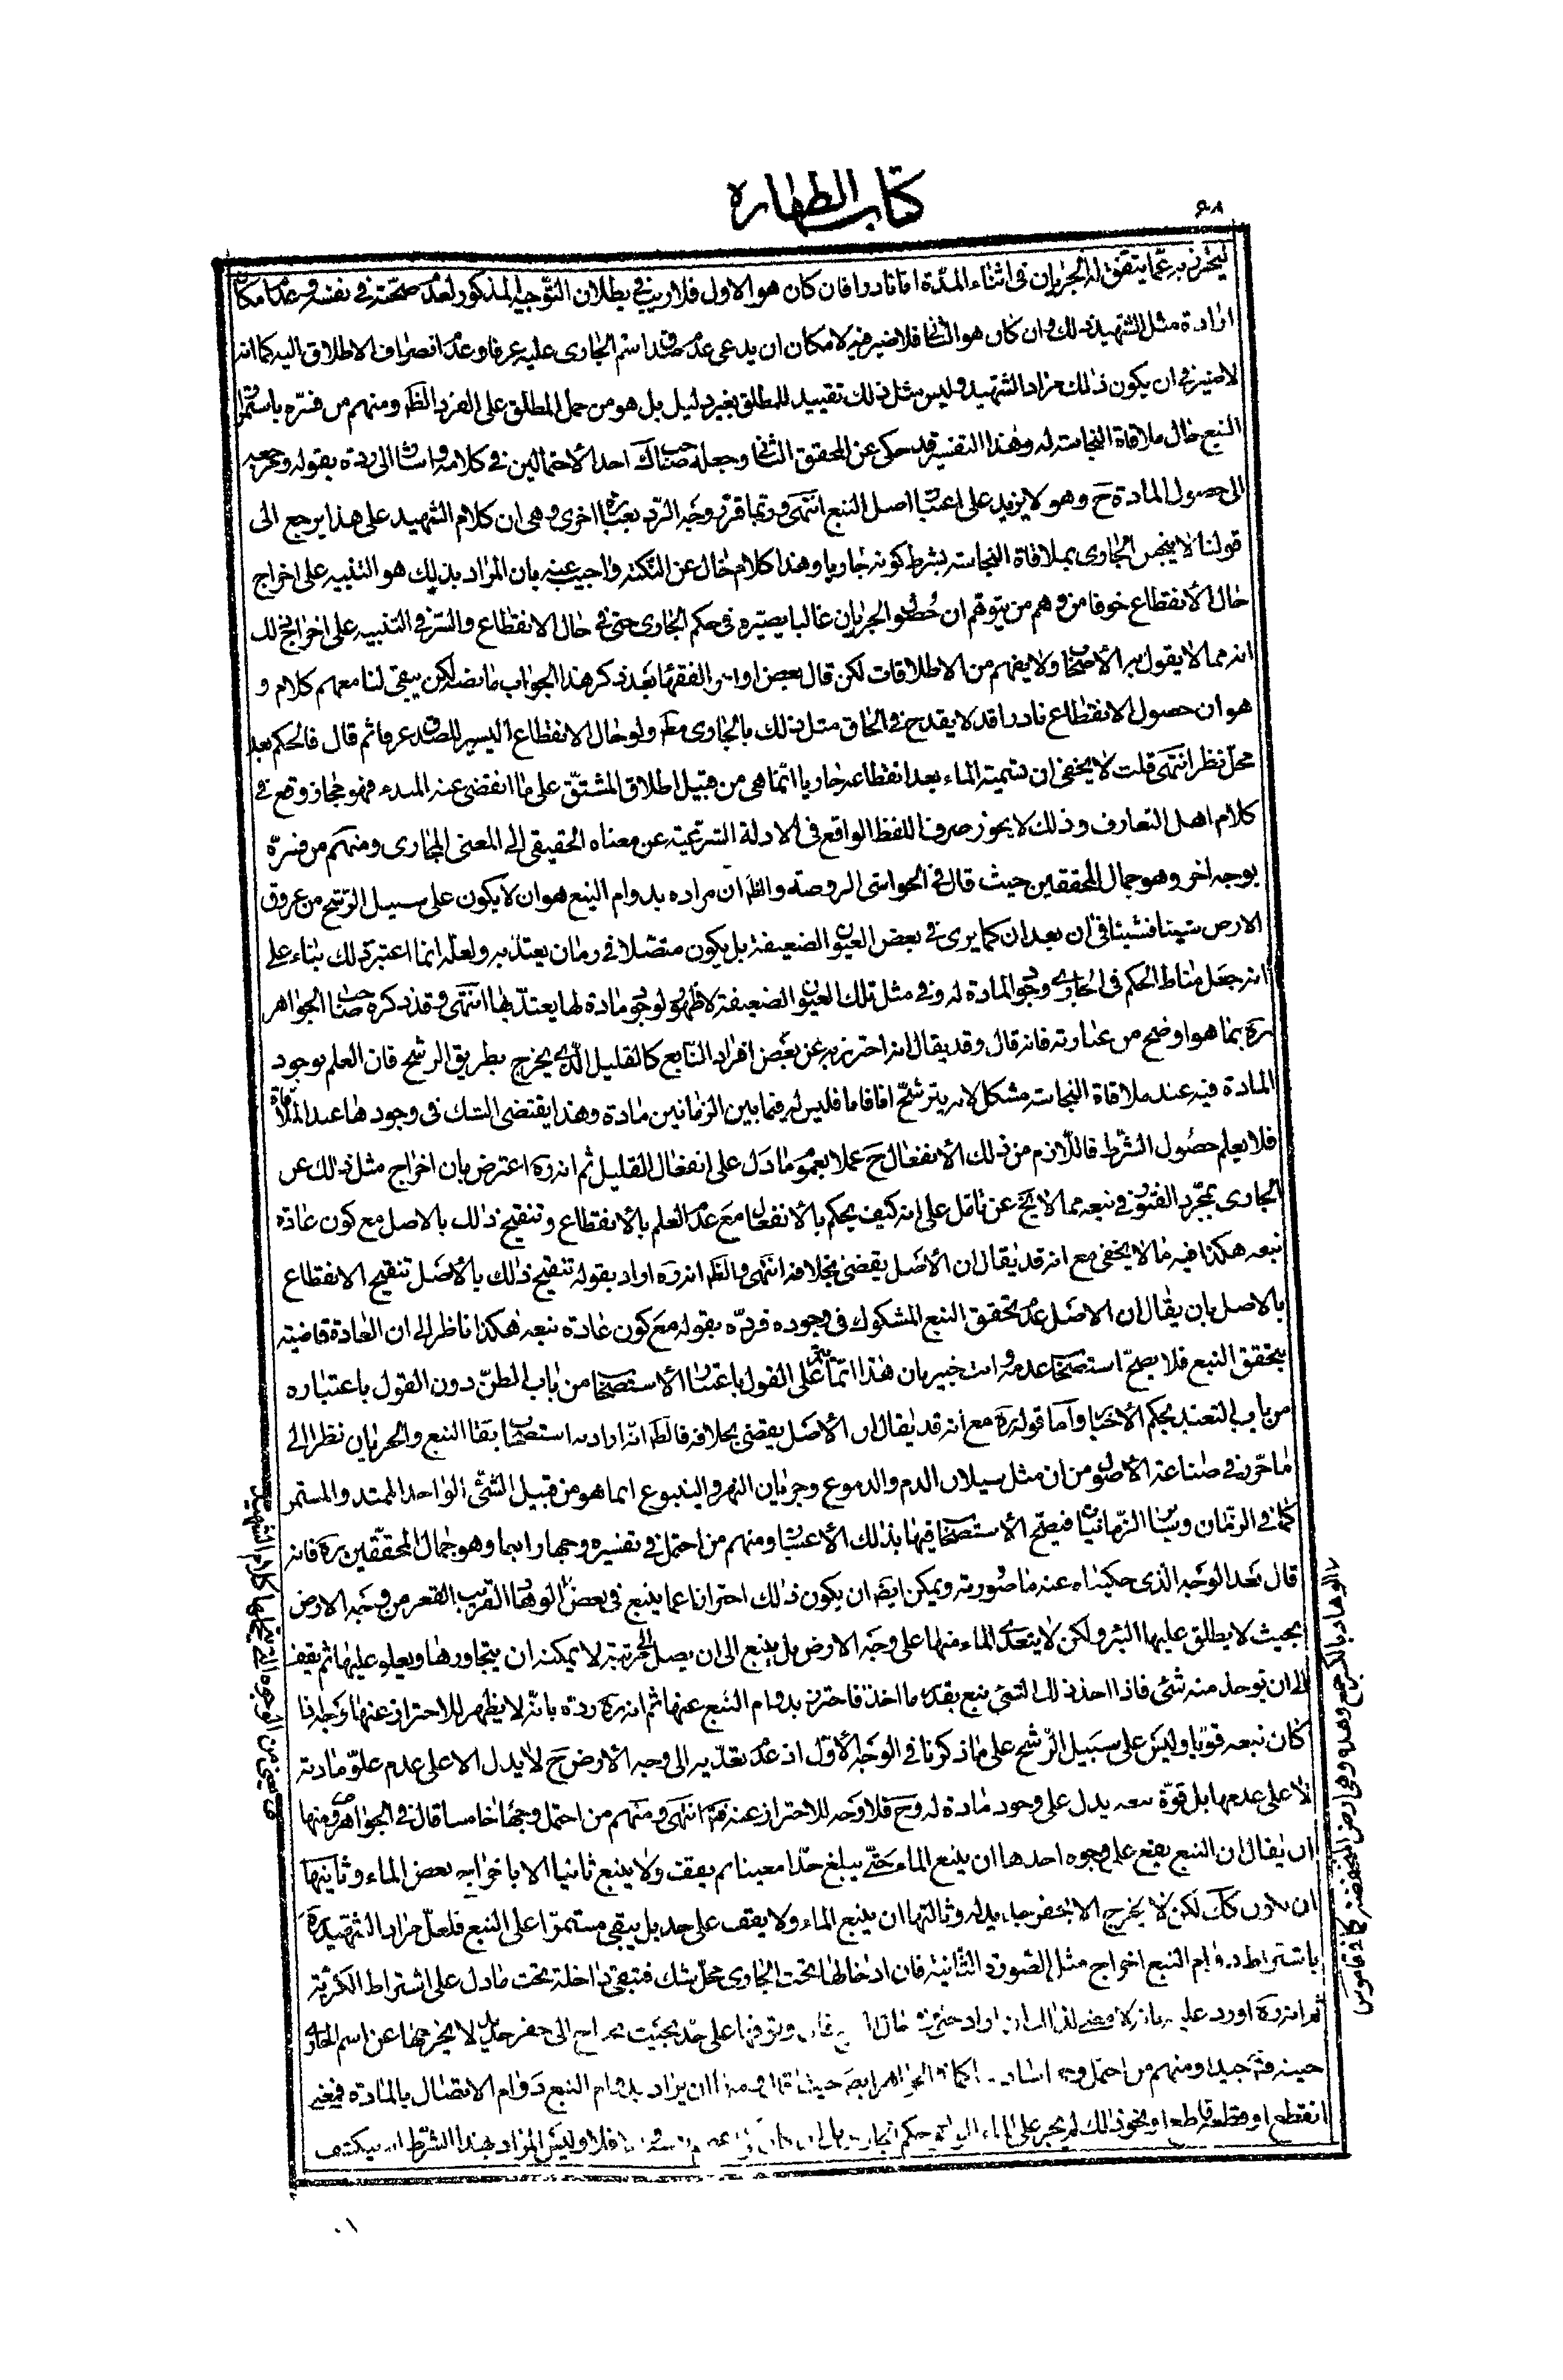 ٦٨
كتاب الطهارة
ليحترز به عما يتفق له الجريان فى اثناء المدة انا نادرا فان كان هو الاول فلا ريب فى بطلان التوجيه المذكور لعدم صحته فى نفسه وعدم امكان
ارادة مثل الشهيد ذلك وان كان هو الثانى فلا ضير فيه لامكان ان يدعى عدم صدق اسم الجارى عليه عرفا وعدم انصراف الاطلاق اليه كما انه
لا ضير فى ان يكون ذلك مراد الشهيد وليس مثل ذلك تقييد للمطلق بغير دليل بل هو من حمل المطلق على الفرد الظ ومنهم من فسّره باستمرار
النبع حال ملاقاة النجاسة له وهذا التفسير قد حكى عن المحقق الثانى وجعله صاحب ك احد الاحتمالين فى كلامه واشار الى رده بقوله ومرجعه
الى حصول المادة ح وهو لا يزيد على اعتبار اصل النبع انتهى وربما قرّر وجه الرد بعبارة اخرى وهى ان كلام الشهيد على هذا يرجع الى
قولنا لا ينجس الجارى بملاقاة النجاسة بشرط كونه جاريا وهذا كلام خال عن النكتة واجيب عنه بان المراد بذلك هو التنبيه على اخراج
حال الانقطاع خوفا من وهم من يتوهم ان حصول الجريان غالبا يصيّره فى حكم الجارى حتى فى حال الانقطاع والسّر فى التنبيه على اخراج ذلك
انه مما لا يقول به الأصحاب ولا يفهم من الاطلاقات لكن قال بعض اواخر الفقهاء بعد ذكر هذا الجواب ما نصه لكن يبقى لنا معهم كلام و
هو ان حصول الانقطاع نادرا قد لا يقدح فى الحاق مثل ذلك بالجارى مط ولو حال الانقطاع اليسير للصدق عرفا ثم قال فالحكم بعد
محل نظر انتهى قلت لا يخفى ان تسمية الماء بعد انقطاعه جاريا انما هى من قبيل اطلاق المشتق على ما انقضى عنه المبدء فهو مجاز وقع فى
كلام اهل التعارف وذلك لا يجوز صرف اللفظ الواقع فى الادلة الشرعية عن معناه الحقيقى الى المعنى المجازى ومنهم من فسرّه
بوجه اخر وهو جمال المحققين حيث قال فى الحواشى الروضة والظ ان مراده بدوام النبع هو ان لا يكون على سبيل الترشح من عروق
الارض شيئا فشيئا فى ان بعد ان كما يرى فى بعض العيون الضعيفة بل يكون متصلا فى زمان يعتدّ به ولعله انما اعتبر ذلك بناء على
انه جعل مناط الحكم فى الجارى وجود المادة له وفى مثل تلك العيون الضعيفة لا ظهور لوجود مادة لها يعتدّ بها انتهى وقد ذكره صاحب الجواهر
ره بما هو اوضح من عبارته فانه قال وقد يقال انه احترز به عن بعض افراد النابع كالقليل الذى يخرج بطريق الرشح فان العلم بوجود
المادة فيه عند ملاقاة النجاسة مشكل لانه يترشح انا فانا فليس له فيما بين الزمانين مادة وهذا يقتضى الشك فى وجودها عند الملاقاة
فلا يعلم حصول الشرط فاللازم من ذلك الأنفعال ح عملا بعموم ما دل على انفعال القليل ثم انه ره اعترض بان اخراج مثل ذلك عن
الجارى بمجرد الفتور فى نبعه مما لا يخ عن تامل على انه كيف يحكم بالانفعال مع عدم العلم بالأنقطاع وتنقيح ذلك بالاصل مع كون عادة
نبعه هكذا فيه ما لا يخفى مع انه قد يقال ان الأصل يقضى بخلافه انتهى والظ انه ره اراد بقوله تنقيح ذلك بالأصل تنقيح الانقطاع
بالاصل بان يقال ان الاصل عدم تحقق النبع المشكوك فى وجوده فردّه بقوله مع كون عادة نبعه هكذا ناظر الى ان العادة قاضية
بتحقق النبع فلا يصحّ استصحاب عدمه وانت خبير بان هذا انما يتم على القول باعتبار الأستصحاب من باب الظن دون القول باعتباره
من باب التعبد بحكم الأخبار واما قوله ره مع انه قد يقال ان الأصل يقضى بخلافه فالظ انه اراد به استصحاب بقاء النبع والجريان نظرا الى
ما حرّر فى صناعة الأصول من ان مثل سيلان الدم والدموع وجريان النهر والينبوع انما هو من قبيل الشئ الواحد الممتد والمستمر
كما فى الزمان وبين الزمانيات فيصحّ الأستصحاب فيها بذلك الأعتبار ومنهم من احتمل فى تفسيره وجها رابعا وهو جمال المحققين ره فانه
قال بعد الوجه الذى حكيناه عنه ما صورته ويمكن ايض ان يكون ذلك احترازا عما ينبع فى بعض الوهاد القريب القعر من وجه الارض
بحيث لا يطلق عليها البئر ولكن لا يتعدى الماء منها على وجه الارض بل ينبع الى ان يصل الى مرتبة لا يمكنه ان يتجاورها ويعلو عليها ثم يقف
الى ان يوخذ منه شئ فاذا اخذ ذلك الشئ نبع بقدر ما اخذ فاحترز بدوام النبع عنها ثم انه ره ردّه بانّه لا يظهر للاحتراز عنها وجه اذا
كان نبعه قويا وليس على سبيل الرشح على ما ذكرنا فى الوجه الأول اذ عدم تعدّيه الى وجه الأرض ح لا يدل الا على عدم علوّ مادته
لا على عدمها بل قوة نبعه يدل على وجود مادة له وح فلا وجه للاحتراز عنه فت انتهى ومنهم من احتمل وجها خامسا قال فى الجواهر ومنها
ان يقال ان النبع يقع على وجوه احدها ان ينبع الماء حتى يبلغ حدّا معينا ثم يقف ولا ينبع ثانيا الا باخراج بعض الماء وثانيها
ان يكون كك لكن لا يخرج الا بحفر جديد وثالثها ان ينبع الماء ولا يقف على حد بل يبقى مستمرّا على النبع فلعل مراد الشهيد ره
باشتراط دوام النبع اخراج مثل الصورة الثانية فان ادخالها تحت الجارى محل شك فتبقى داخلة تحت ما دل على اشتراط الكرية
ثم انه ره اورد عليه بانه لا معنى لذا ان اراد حتى فى حال وتوقفها على حدّ بحيث يحتاج الى حفر جديد لا يخرجها عن اسم الجارى
حينه فت جيدا ومنهم من احتمل وجها سادسا كما فى الجواهر ايض حيث قال ومنها ان يراد بدوام النبع دوام الاتصال بالمادة فمعنى
انقطع او قطعه قاطع او نحو ذلك لم يجر على الماء حكم الجارى فلا وليس المراد بهذا الشرط انه يكتفى
الوهاد بالكسر جمع وهدة وهى ارض المنخفضة قاموس
فى من الوجوه التى يحتملها كلام الشهيد